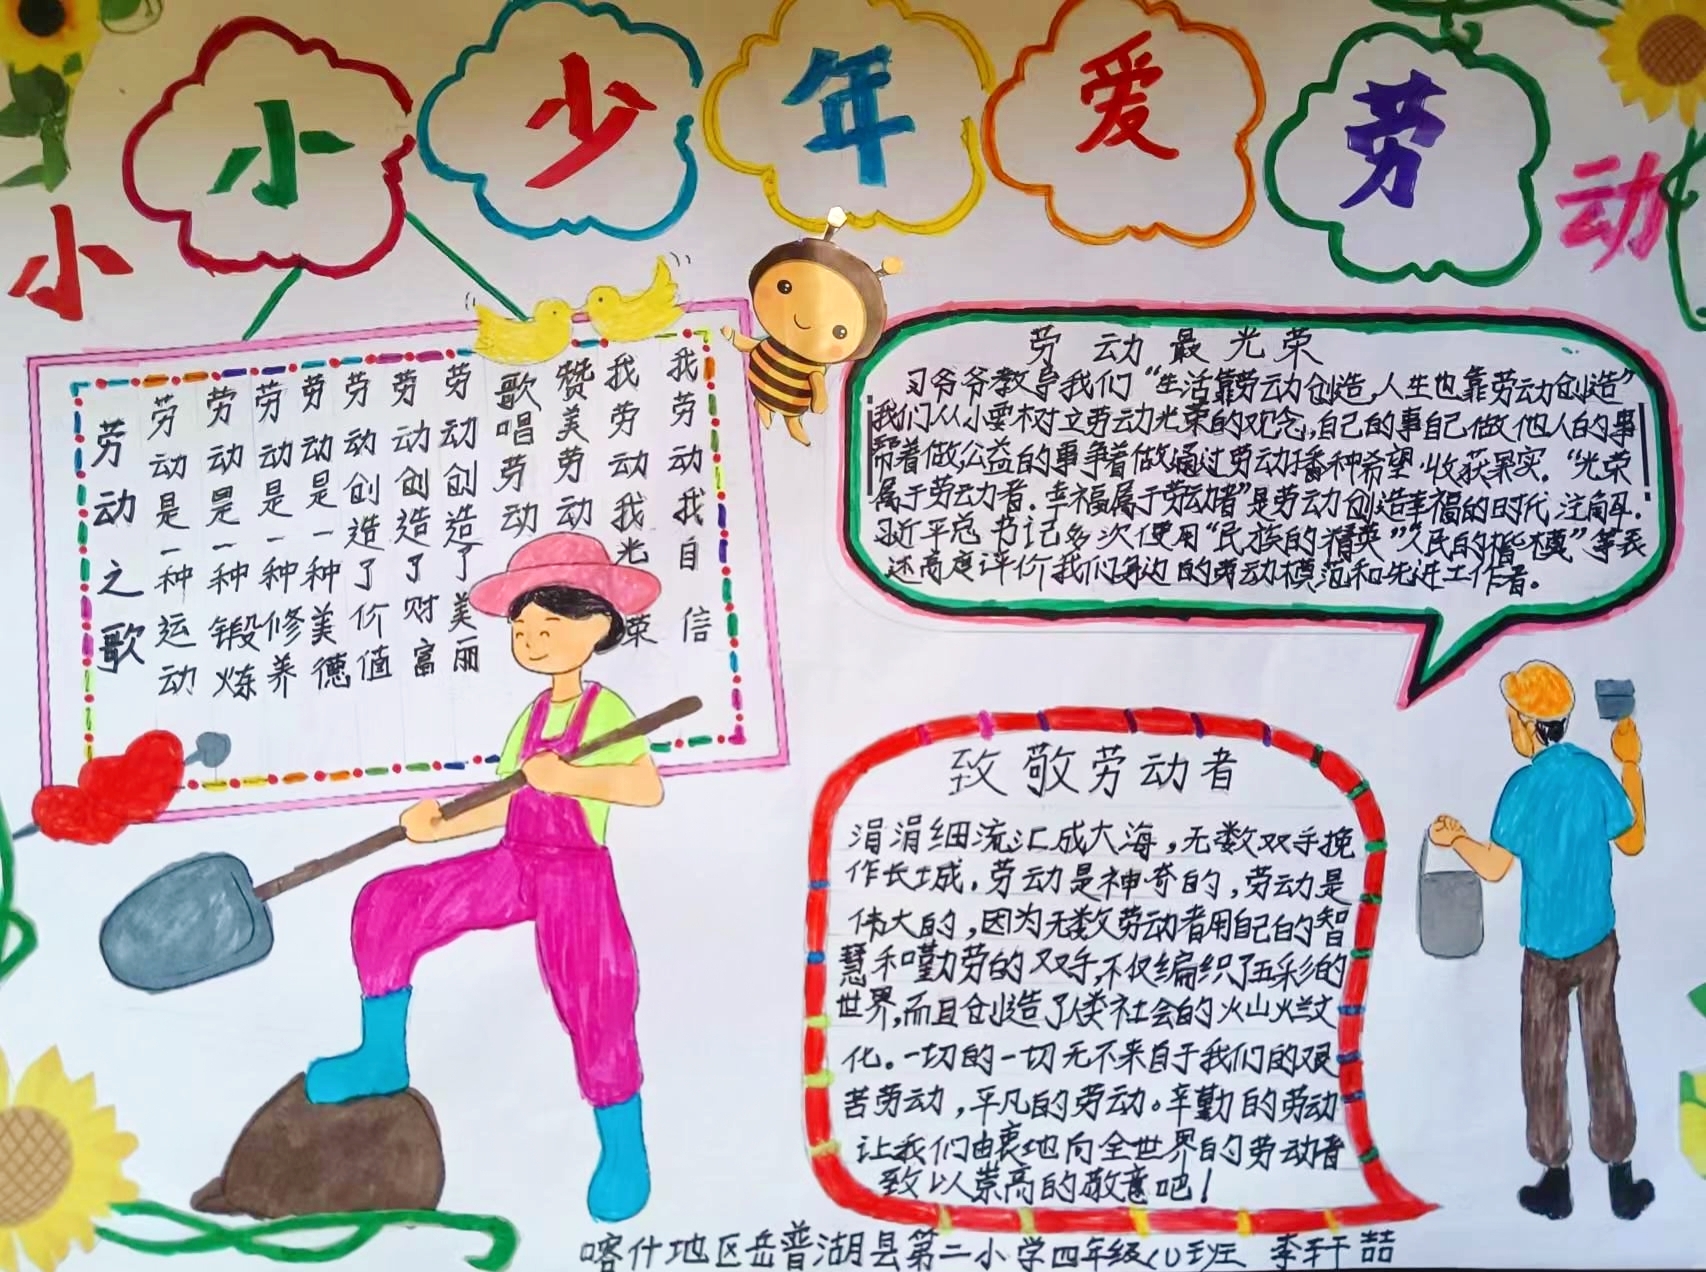 小小少年爱劳动
劳动之歌
劳动是一种运动
劳动是一种锻炼
劳动是一种修养
劳动是一种美德
劳动创造了价值
劳动创造了财富
劳动创造了美丽
歌唱劳动
赞美劳动
我劳动我光荣
我劳动我自信
劳动最光荣
习爷爷教导我们“生活靠劳动创造,人生也靠劳动创造”
我们从小要树立劳动光荣的观念,自己的事自己做,他人的事
帮着做,公益的事争着做,通过劳动播种希望·收获果实.“光荣
属于劳动者.幸福属于劳动者”是劳动创造幸福的时代注解.
习近平总书记多次使用“民族的精英”“人民的楷模”等表
述高度评价我们身边的劳动模范和先进工作者。
致敬劳动者
涓涓细流汇成大海,无数双手挽
作长城.劳动是神奇的,劳动是
伟大的,因为无数劳动者用自己的智
慧和勤劳的双手,不仅编织了五彩的
世界,而且创造了人类社会的火山烂文
化。一切的一切无不来自于我们的艰
苦劳动,平凡的劳动。辛勤的劳动
让我们由衷地向全世界的劳动者
致以崇高的敬意吧!
喀什地区岳普湖县第二小学四年级(1)班 李轩喆